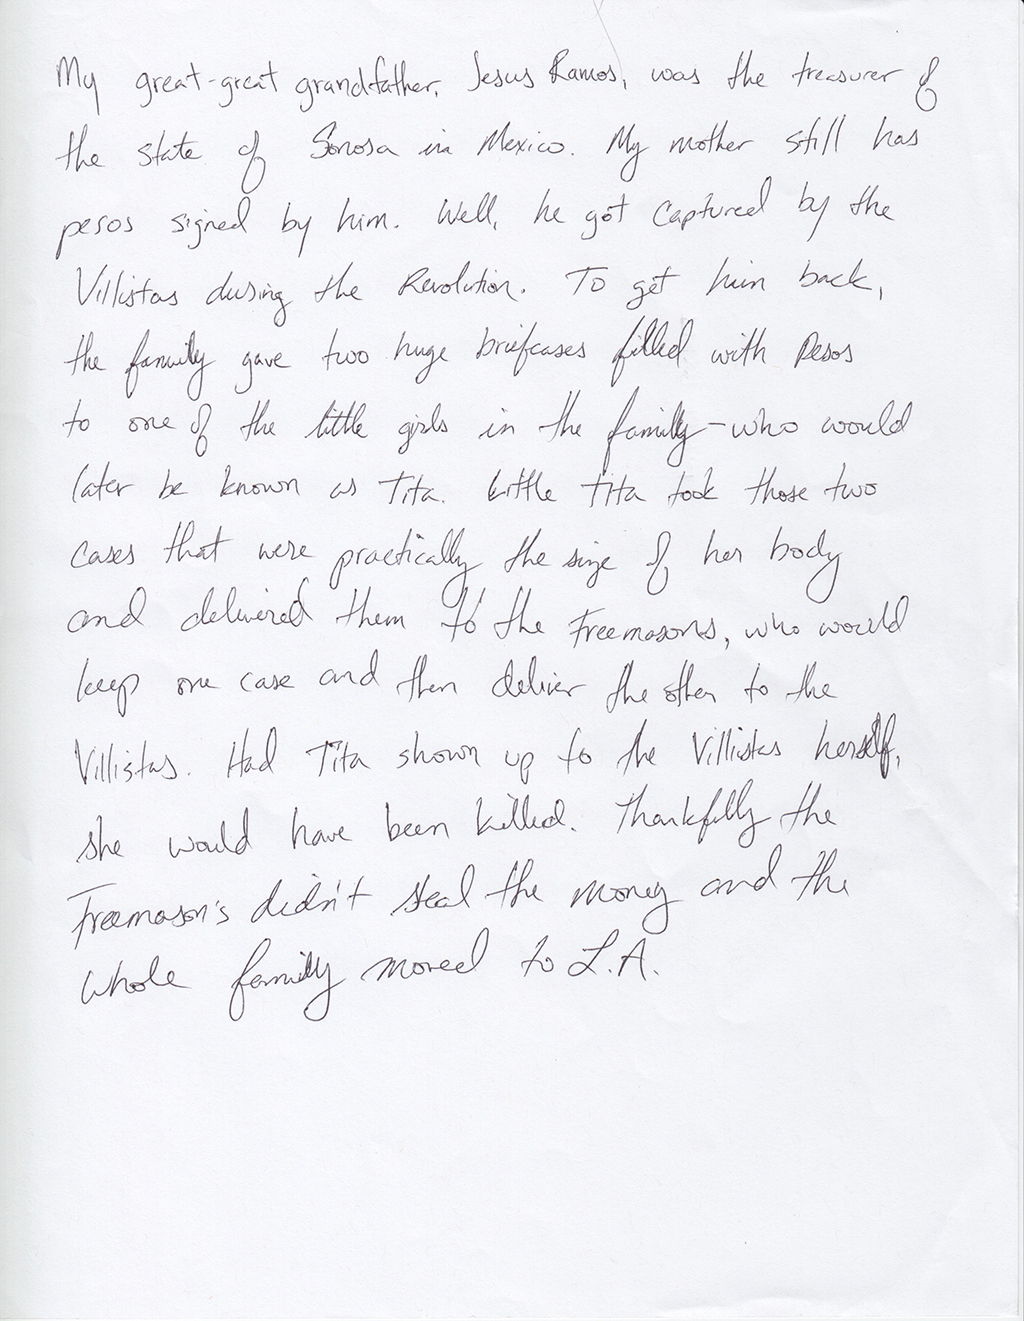 My great-great grandfather, Jesus Ramos, was the treasurer of
the state of Sonora in Mexico. My mother still has
pesos signed by him. Well, he got captured by the
Villistas during the Revolution. To get him back,
the family gave two huge briefcases filled with pesos
to one of the little girls in the family - who would
later be known as Tita. Little Tita took those two
cases that were practically the size of her body
and delivered them to the Freemasons, who would
keep one case and then deliver the other to the
Villistas. Had Tita shown up to the Villistas herself,
she would have been killed. Thankfully the
Freemason's didn't steal the money and the
whole family moved to L.A.